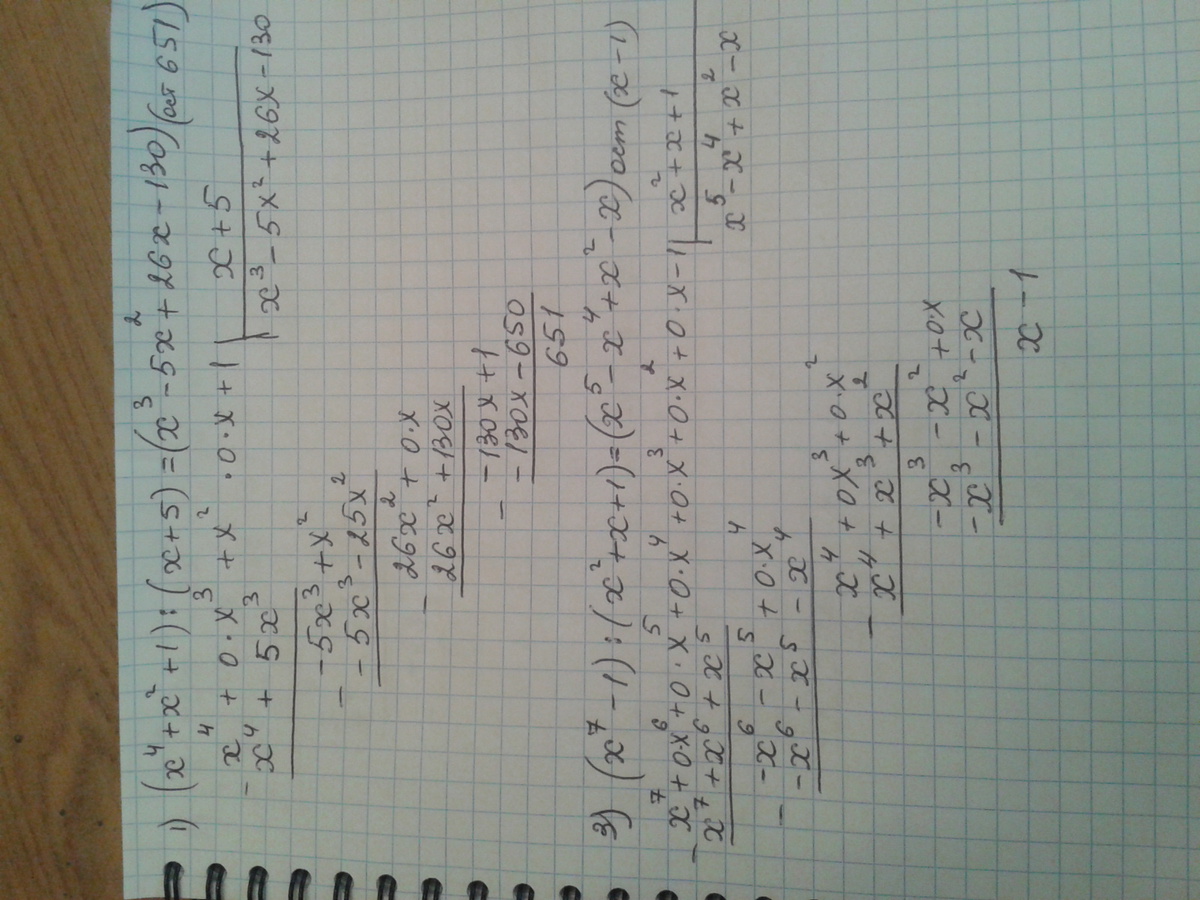 1) (x⁴+x²+1):(x+5)=(x³-5x²+26x-130)(ост 651)
- x⁴+0·x³+x²·0·x+1 | x+5
x⁴+5x³ | x³-5x²+26x-130
- -5x³+x²
-5x³-25x²
- 26x²+0·x
26x²+130x
- -130x+1
-130x-650
651
3) (x⁷-1):(x²+x+1)=(x⁵-x⁴+x²-x)ост(x-1)
- x⁷+0x⁶+0·x⁵+0·x⁴+0·x³+0·x²+0·x-1 | x²+x+1
x⁷+x⁶+x⁵ | x⁵-x⁴+x²-x
- -x⁶-x⁵+0·x⁴
-x⁶-x⁵-x⁴
- x⁴+0x³+0·x²
x⁴+x³+x²
-x³-x²+0·x
-x³-x²-x
x-1